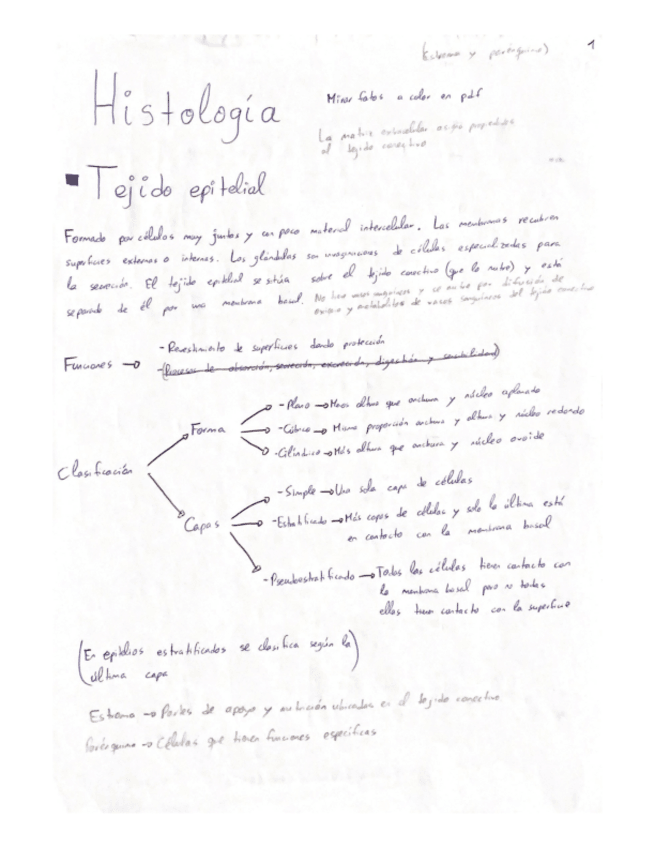 (Estroma y parénquima) 1
Histología
Mirar fotos a color en pdf
La matriz extracelular otorga propiedades
al tejido conectivo
Tejido epitelial
Formado por células muy juntas y con poco material intercelular. Las membranas recubren
superficies externas o internas. Las glándulas son invaginaciones de células especializadas para
la secreción. El tejido epitelial se sitúa sobre el tejido conectivo (que lo nutre) y está
separado de él por una membrana basal. No hay vasos sanguíneos y se nutre por difusión de
oxígeno y metabolitos de vasos sanguíneos del tejido conectivo
Funciones → - Revestimiento de superficies dando protección
- (Procesos de absorción, secreción, excreción, digestión y sensibilidad)
Clasificación
Forma
- Plano → Menos altura que anchura y núcleo aplanado
- Cúbico → Misma proporción anchura y altura y núcleo redondo
- Cilíndrico → Más altura que anchura y núcleo ovoide
Capas
- Simple → Una sola capa de células
- Estratificado → Más capas de células y solo la última está
en contacto con la membrana basal
- Pseudoestratificado → Todas las células tienen contacto con
la membrana basal pero no todas
ellas tienen contacto con la superficie
(En epitelios estratificados se clasifica según la
última capa)
Estroma → Partes de apoyo y nutrición ubicadas en el tejido conectivo
Parénquima → Células que tienen funciones específicas